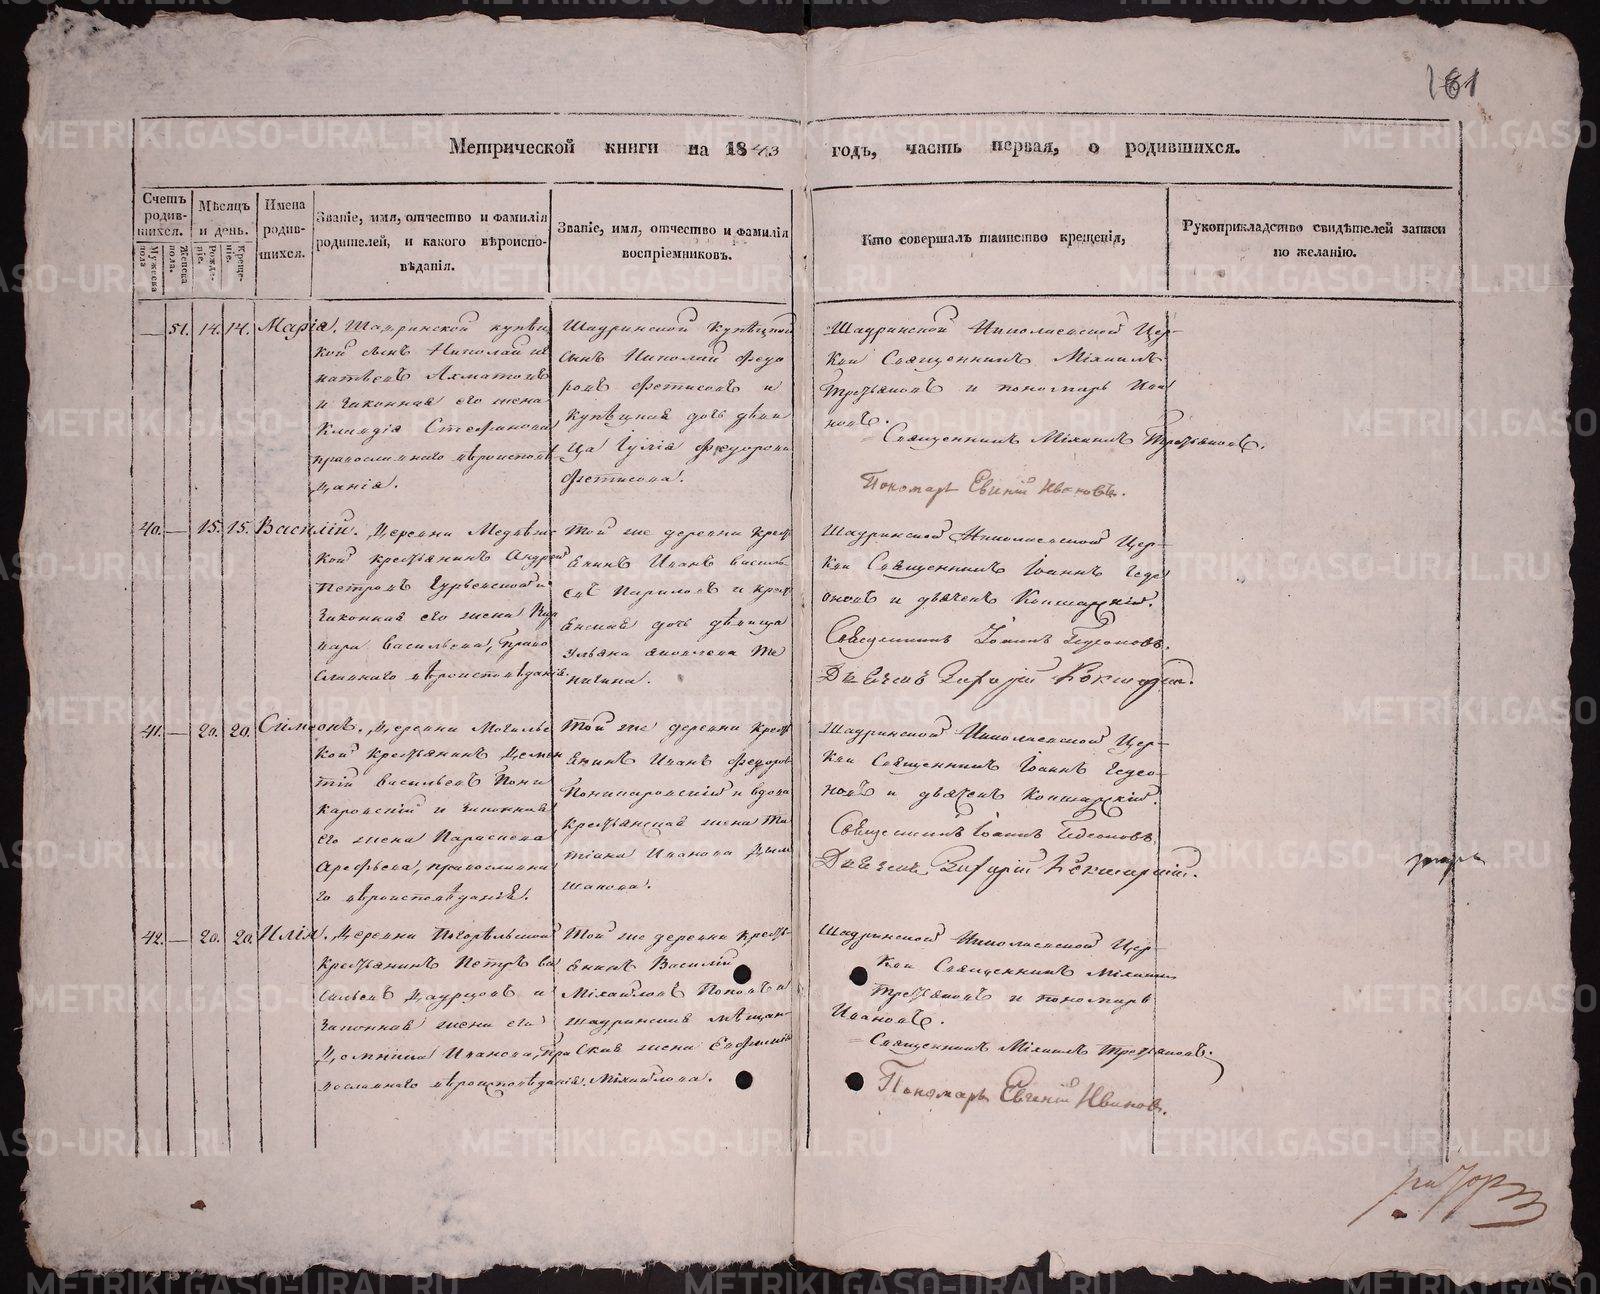 181
Метрической книги на 1843 годъ, часть первая, о родившихся.
Счетъ родив-
шихся.
Мужеска пола
Женска пола.
Мѣсяцъ
и день.
Рожде-
ніе.
Креще-
ніе.
Имена
родив-
шихся.
Званіе, имя, отчество и фамилія
родителей, и какого вѣроиспо-
вѣданія.
Званіе, имя, отчество и фамилія
воспріемниковъ.
Кто совершалъ таинство крещенія,
Рукоприкладство свидѣтелей записи
по желанію.
— 51. 14. 14. Марія.
Шадринской купец
кой сынъ Николай Иг
натьевъ Ахматовъ
и законная его жена
Клавдія Стефанова,
православнаго вѣроисповѣ
данія.
Шадринской Купецкой
сынъ Николай Федо
ровъ Фетисовъ и
Купецкая дочь деви
ца Іулія Федорова
Фетисова.
Шадринской Николаевской Цер-
кви Священникъ Михаилъ
и пономарь Ива
новъ.
Священникъ Михаилъ
Пономарь Евгеній Ивановъ.
40. — 15. 15. Василій.
Деревни
кой крестьянинъ Андрей
Петровъ
законная его жена
Васильева, право
славнаго вѣроисповѣданія.
Той же деревни крест
янинъ Иванъ Василь
евъ и крест
янская дочь девица
Ульяна Яковлева
Шадринской Николаевской Цер-
кви Священникъ Іоаннъ Гедео
новъ и дьячекъ Кокшарскій.
Священникъ Іоаннъ Гедеоновъ.
Дьячекъ Захарій Кокшарскій.
41. — 20. 20. Симеонъ.
Деревни
кой крестьянинъ Демен
тій Васильевъ Пони
каровскій и законная
его жена Параскева
Арефьева, православна
го вѣроисповѣданія.
Той же деревни крест
янинъ Иванъ Федоровъ
Поникаровскій и вдова
крестьянская жена Та
тіана Иванова
Шадринской Николаевской Цер-
кви Священникъ Іоаннъ Гедео-
новъ и дьячекъ Кокшарскій.
Священникъ Іоаннъ Гедеоновъ.
Дьячекъ Захарій Кокшарскій.
42. — 20. 20. Илія.
Деревни Погорѣльской
крестьянинъ Петръ Ва
сильевъ и
законная жена его
Иванова, пра
вославнаго вѣроисповѣданія.
Той же деревни крестья
янинъ Василій
Михайловъ Поповъ и
шадринская мѣщан
ская жена Евфимія
Михайлова.
Шадринской Николаевской Цер-
кви Священникъ Михаилъ
и пономарь
Ивановъ.
Священникъ Михаилъ
Пономарь Евгеній Ивановъ.
METRIKI.GASO-URAL.RU